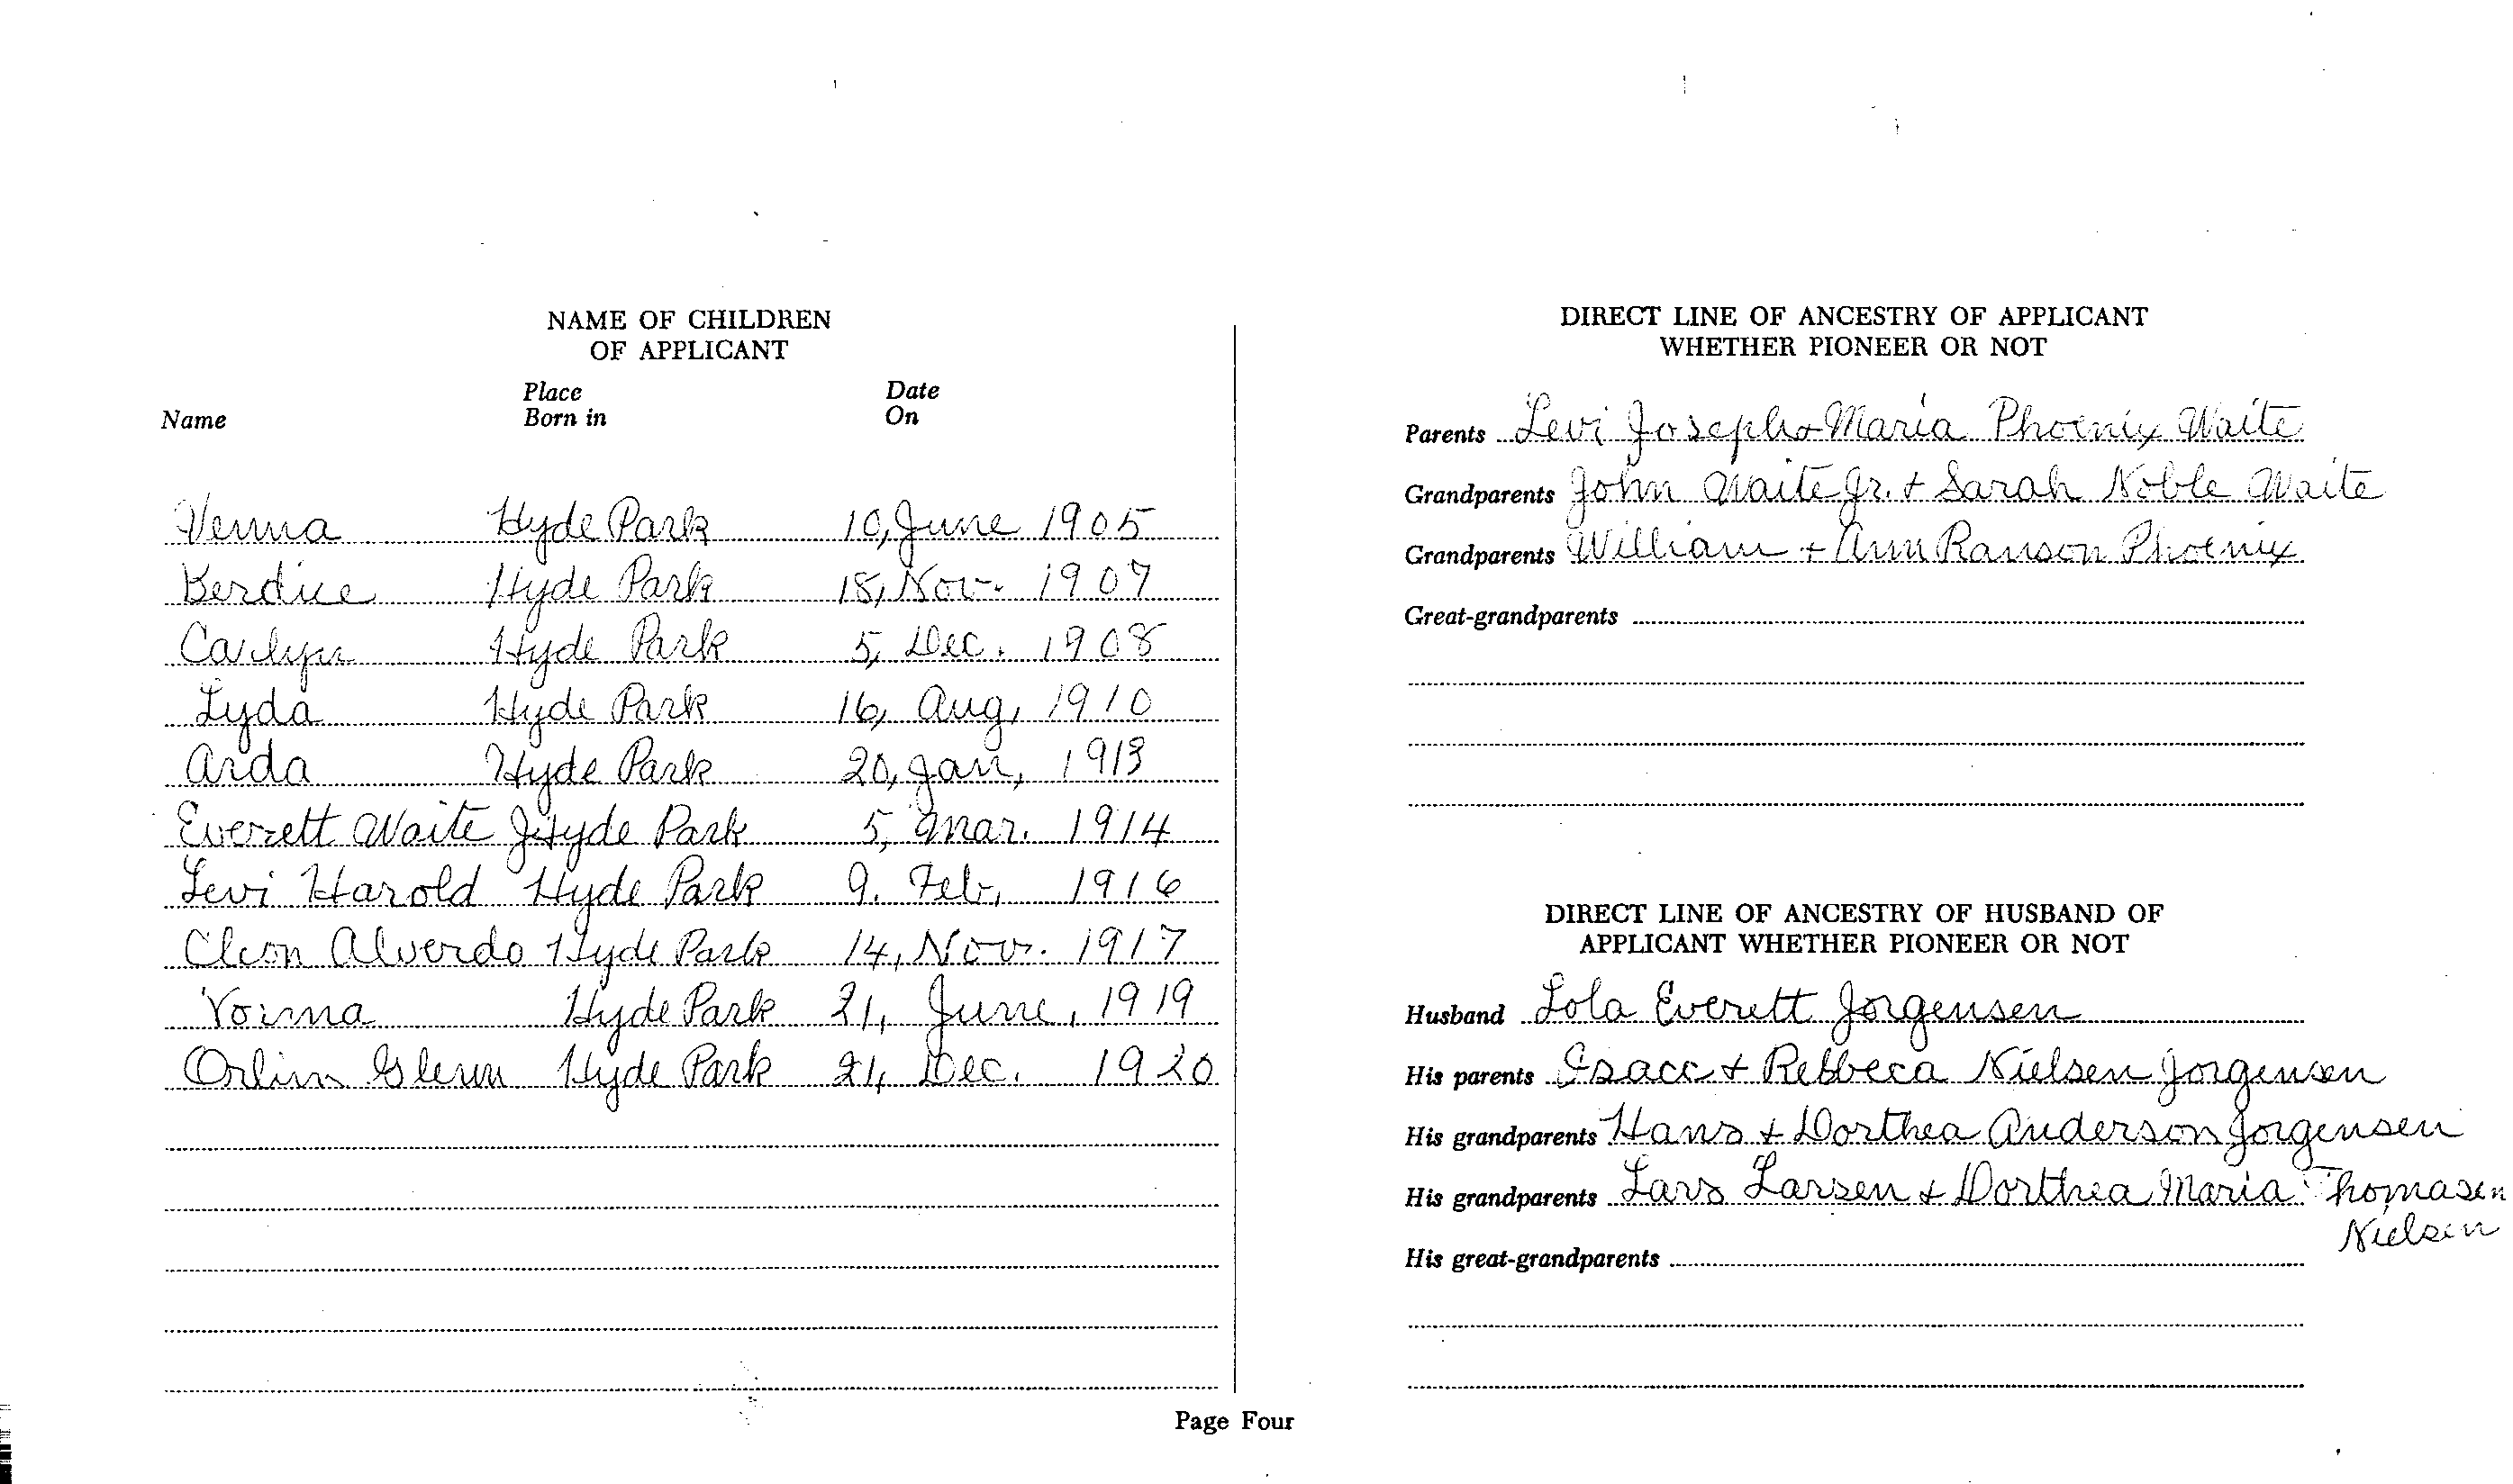 NAME OF CHILDREN
OF APPLICANT
Place Date
Name Born in On
Venna Hyde Park 10, June 1905
Berdice Hyde Park 18, Nov. 1907
Carlyn Hyde Park 5, Dec. 1908
Lyda Hyde Park 16, Aug, 1910
Arda Hyde Park 20, Jan, 1913
Everett Waite J Hyde Park 5, Mar. 1914
Levi Harold Hyde Park 9. Feb, 1916
Cleon Alverdo Hyde Park 14, Nov. 1917
Norma Hyde Park 21, June, 1919
Orlin Glenn Hyde Park 21, Dec. 1920
DIRECT LINE OF ANCESTRY OF APPLICANT
WHETHER PIONEER OR NOT
Parents Levi Joseph & Maria Phoenix Waite
Grandparents John Waite Jr. + Sarah Noble Waite
Grandparents William + Ann Ranson Phoenix
Great-grandparents
DIRECT LINE OF ANCESTRY OF HUSBAND OF
APPLICANT WHETHER PIONEER OR NOT
Husband Lola Everett Jorgensen
His parents Isacc + Rebbeca Nielsen Jorgensen
His grandparents Hans + Dorthea Anderson Jorgensen
His grandparents Lars Larsen + Dorthea Maria Thomasen
Nielsen
His great-grandparents
Page Four